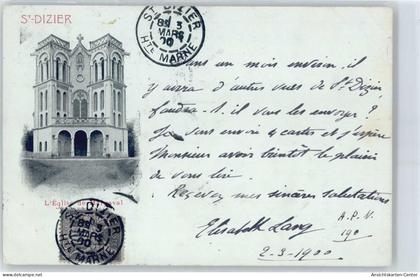 ST-DIZIER
ST DIZIER
3
MARS
00
HTE MARNE
Dans un mois environ il
y aura d'autres vues de St Dizier
faudra-t-il vous les envoyer?
Je vous envoi 4 cartes et j'espère
Monsieur avoir bientôt le plaisir
de vous lire.
Recevez mes sincères salutations
Elisabeth Lang
A.P.V.
190
2-3-1900
L'Eglise de
ST DIZIER
HTE MARNE
www.ansichtskartenversand.com